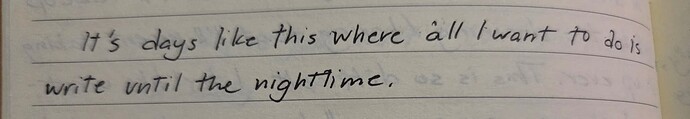 It's days like this where all I want to do is
write until the nighttime.